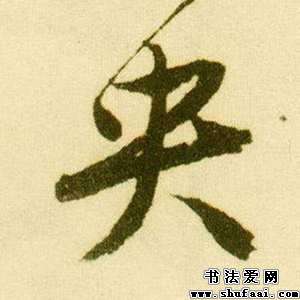 央
书法爱网
www.shufaai.com